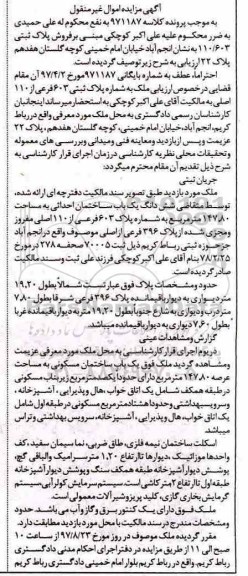 آگهی مزایده اموال غیرمنقول
به موجب پرونده کلاسه ۹۷۱۱۸۷ به نفع محکوم له علی حمیدی
به ضرر محکوم علیه علی اکبر کوچکی مبنی بر فروش پلاک ثبتی
۱۱۰/۶۰۳ به نشان انجم آباد خیابان امام خمینی کوچه گلستان هفدهم
پلاک ۲۲ ارزیابی به شرح زیر توصیف گردیده است.
احتراما، عطف به شماره بایگانی ۹۷۱۱۸۷ مورخ ۹۷/۴/۲ آن مقام
قضایی در خصوص ارزیابی ملک به شماره پلاک ثبتی ۶۰۳ فرعی از ۱۱۰
اصلی به مالکیت آقای علی اکبر کوچکی به استحضار میرساند اینجانبان
کارشناسان رسمی دادگستری به محل ملک مورد معرفی واقع در رباط
کریم، انجم آباد، خیابان امام خمینی، کوچه گلستان هفدهم، پلاک ۲۲
عزیمت و پس از بازدید و معاینه فنی و میدانی و بررسی های معموله
و تحقیقات محلی نظریه کارشناسی در زمان اجرای قرار کارشناسی به
شرح ذیل تقدیم آن مقام محترم میگردد:
جریان ثبتی
ملک مورد بازدید طبق تصویر سند مالکیت دفترچه ای ارائه شده،
توسط متقاضی شش دانگ یک باب ساختمان احداثی به مساحت
۱۴۷/۸۰ مترمربع به شماره پلاک ۶۰۳ فرعی از ۱۱۰ اصلی مفروز
و مجزی شده از پلاک ۳۹۶ فرعی از اصلی موصوف واقع در انجم آباد
جزء حوزه ثبتی رباط کریم ذیل ثبت ۷۰۰۰۵ صفحه ۲۷۸ در مورخ
۷۸/۲/۲۵ بنام آقای علی اکبر کوچکی فرزند علی ثبت و سند مالکیت
صادر گردیده است.
حدود و مشخصات پلاک فوق عبارتست شمالا بطول ۱۹/۲۰
متر دیواری به دیوار باقیمانده پلاک ۳۹۶ فرعی شرقا بطول ۷/۸۰
متر درب و دیواری به شارع جنوبا بطول ۱۹/۲۰ متر به دیوار باقیمانده غربا
بطول ۷/۶۰ دیواری به دیوار باقیمانده میباشد.
گزارش و مشاهدات عینی
در یوم اجرای قرار کارشناسی به محل ملک مورد معرفی عزیمت
و مشاهده گردید ملک فوق یک باب ساختمان مسکونی به مساحت
عرصه ۱۴۷/۸۰ مترمربع دارای حدودا یکصد مترمربع زیربنای مسکونی
در طبقه همکف شامل یک اتاق خواب ،هال و پذیرایی ، آشپزخانه ،
و سرویس بهداشتی و حدودا هشتاد مترمربع مسکونی در طبقه اول شامل
یک اتاق خواب، هال و پذیرایی، آشپزخانه، سرویس بهداشتی و تراس
میباشد
اسکلت ساختمان نیمه فلزی، طاق ضربی، نما سیمان سفید، کف
واحدها موزائیک ،دیوارها تا ارتفاع ۱/۲۰ متر سرامیک و الباقی گچ،
پوشش دیوار آشپزخانه طبقه همکف سنگ و پوشش دیوار آشپزخانه
طبقه اول تا ارتفاع ۲ متر کاشی است. سیستم سرمایش کولر آبی،سیستم
گرمایش بخاری گازی، کلید پریز و شیرآلات معمولی است.
ملک فوق دارای یک کنتور برق و گاز و آب می باشد. حدود
و مشخصات مندرج در سند مالکیت با محل مورد بازدید مطابقت دارد.
مقرر گردیده ملک موصوف در روز مورخ ۹۷/۸/۲۳ از ساعت ۱۰
صبح الی ۱۱ از طریق مزایده در دفتر اجرای احکام مدنی دادگستری
رباط کریم. واقع در رباط کریم بلوار امام خمینی دادگستری رباط کریم